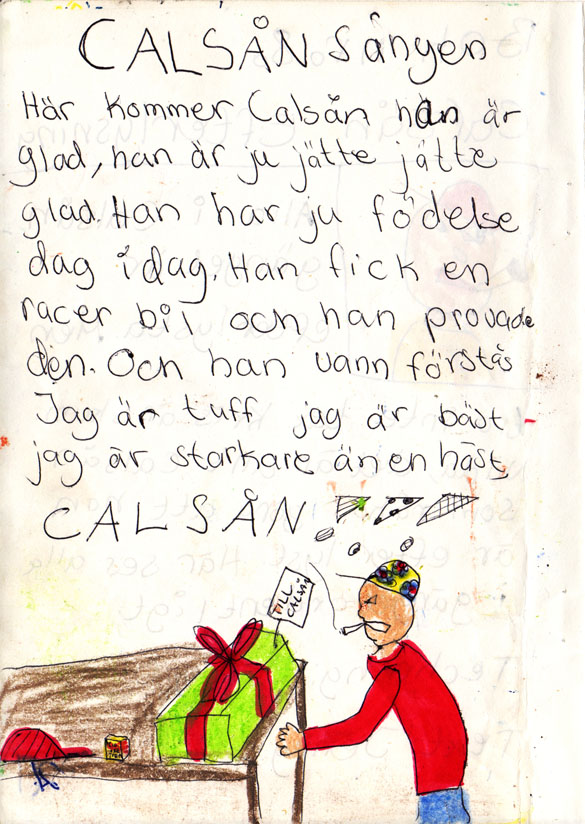 CALSÅN sången
Här kommer Calsån han är
glad, han är ju jätte jätte
glad. Han har ju födelse
dag idag. Han fick en
racer bil och han provade
den. Och han vann förstås
Jag är tuff jag är bäst
jag är starkare än en häst
CALSÅN!!!
TILL
CALSÅN